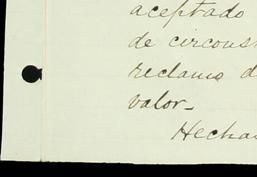 aceptado
de circons
reclamo d
valor_
Hecha